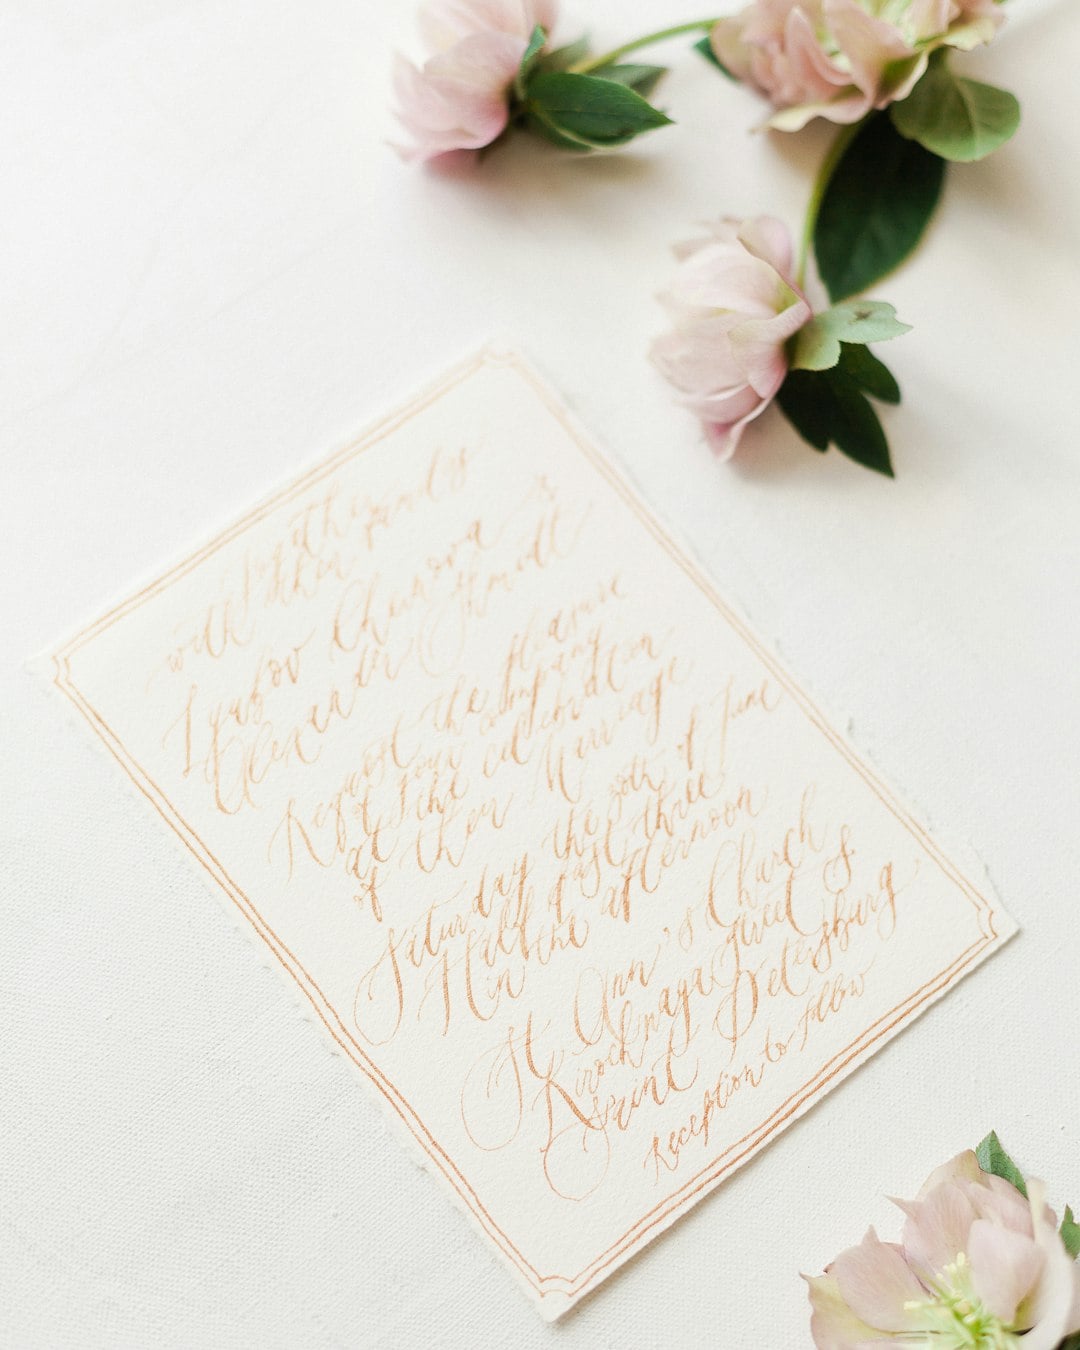 Together
with their families
Lyubov Chernova &
Alexander Shmidt
Request the pleasure
of your company
at the celebration
of their Marriage
Saturday the 30th of June
Half past three
in the afternoon
St. Ann's Church
Kirochnaya Street 8
Saint Petersburg
Reception to follow